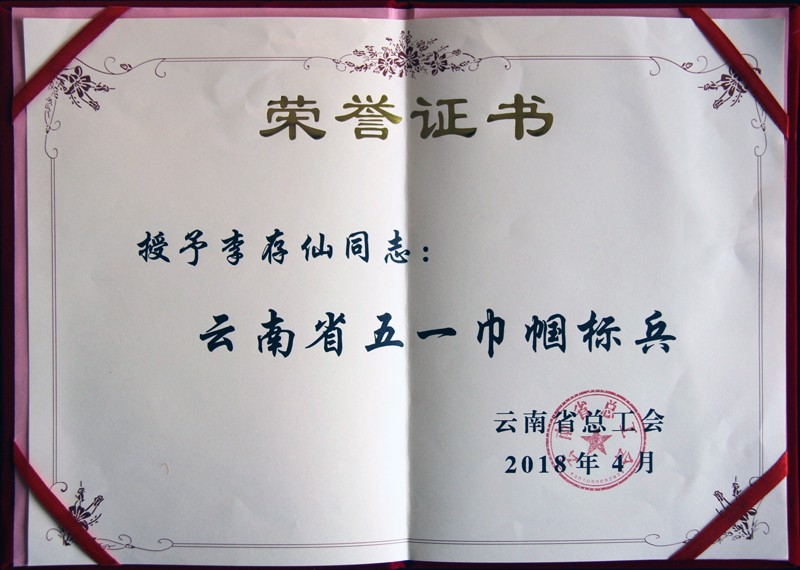 荣誉证书
授予李存仙同志：
云南省五一巾帼标兵
云南省总工会
2018年4月